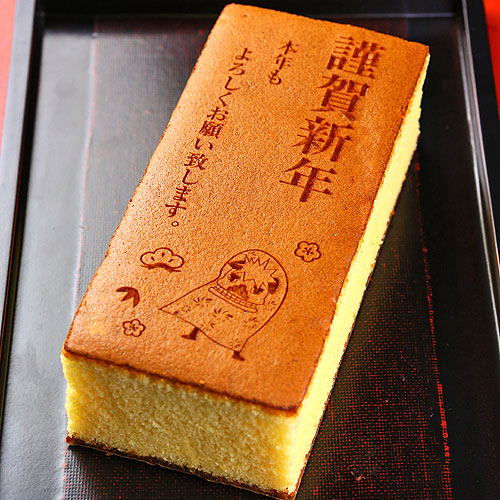 謹賀新年
本年も
よろしくお願い致します。